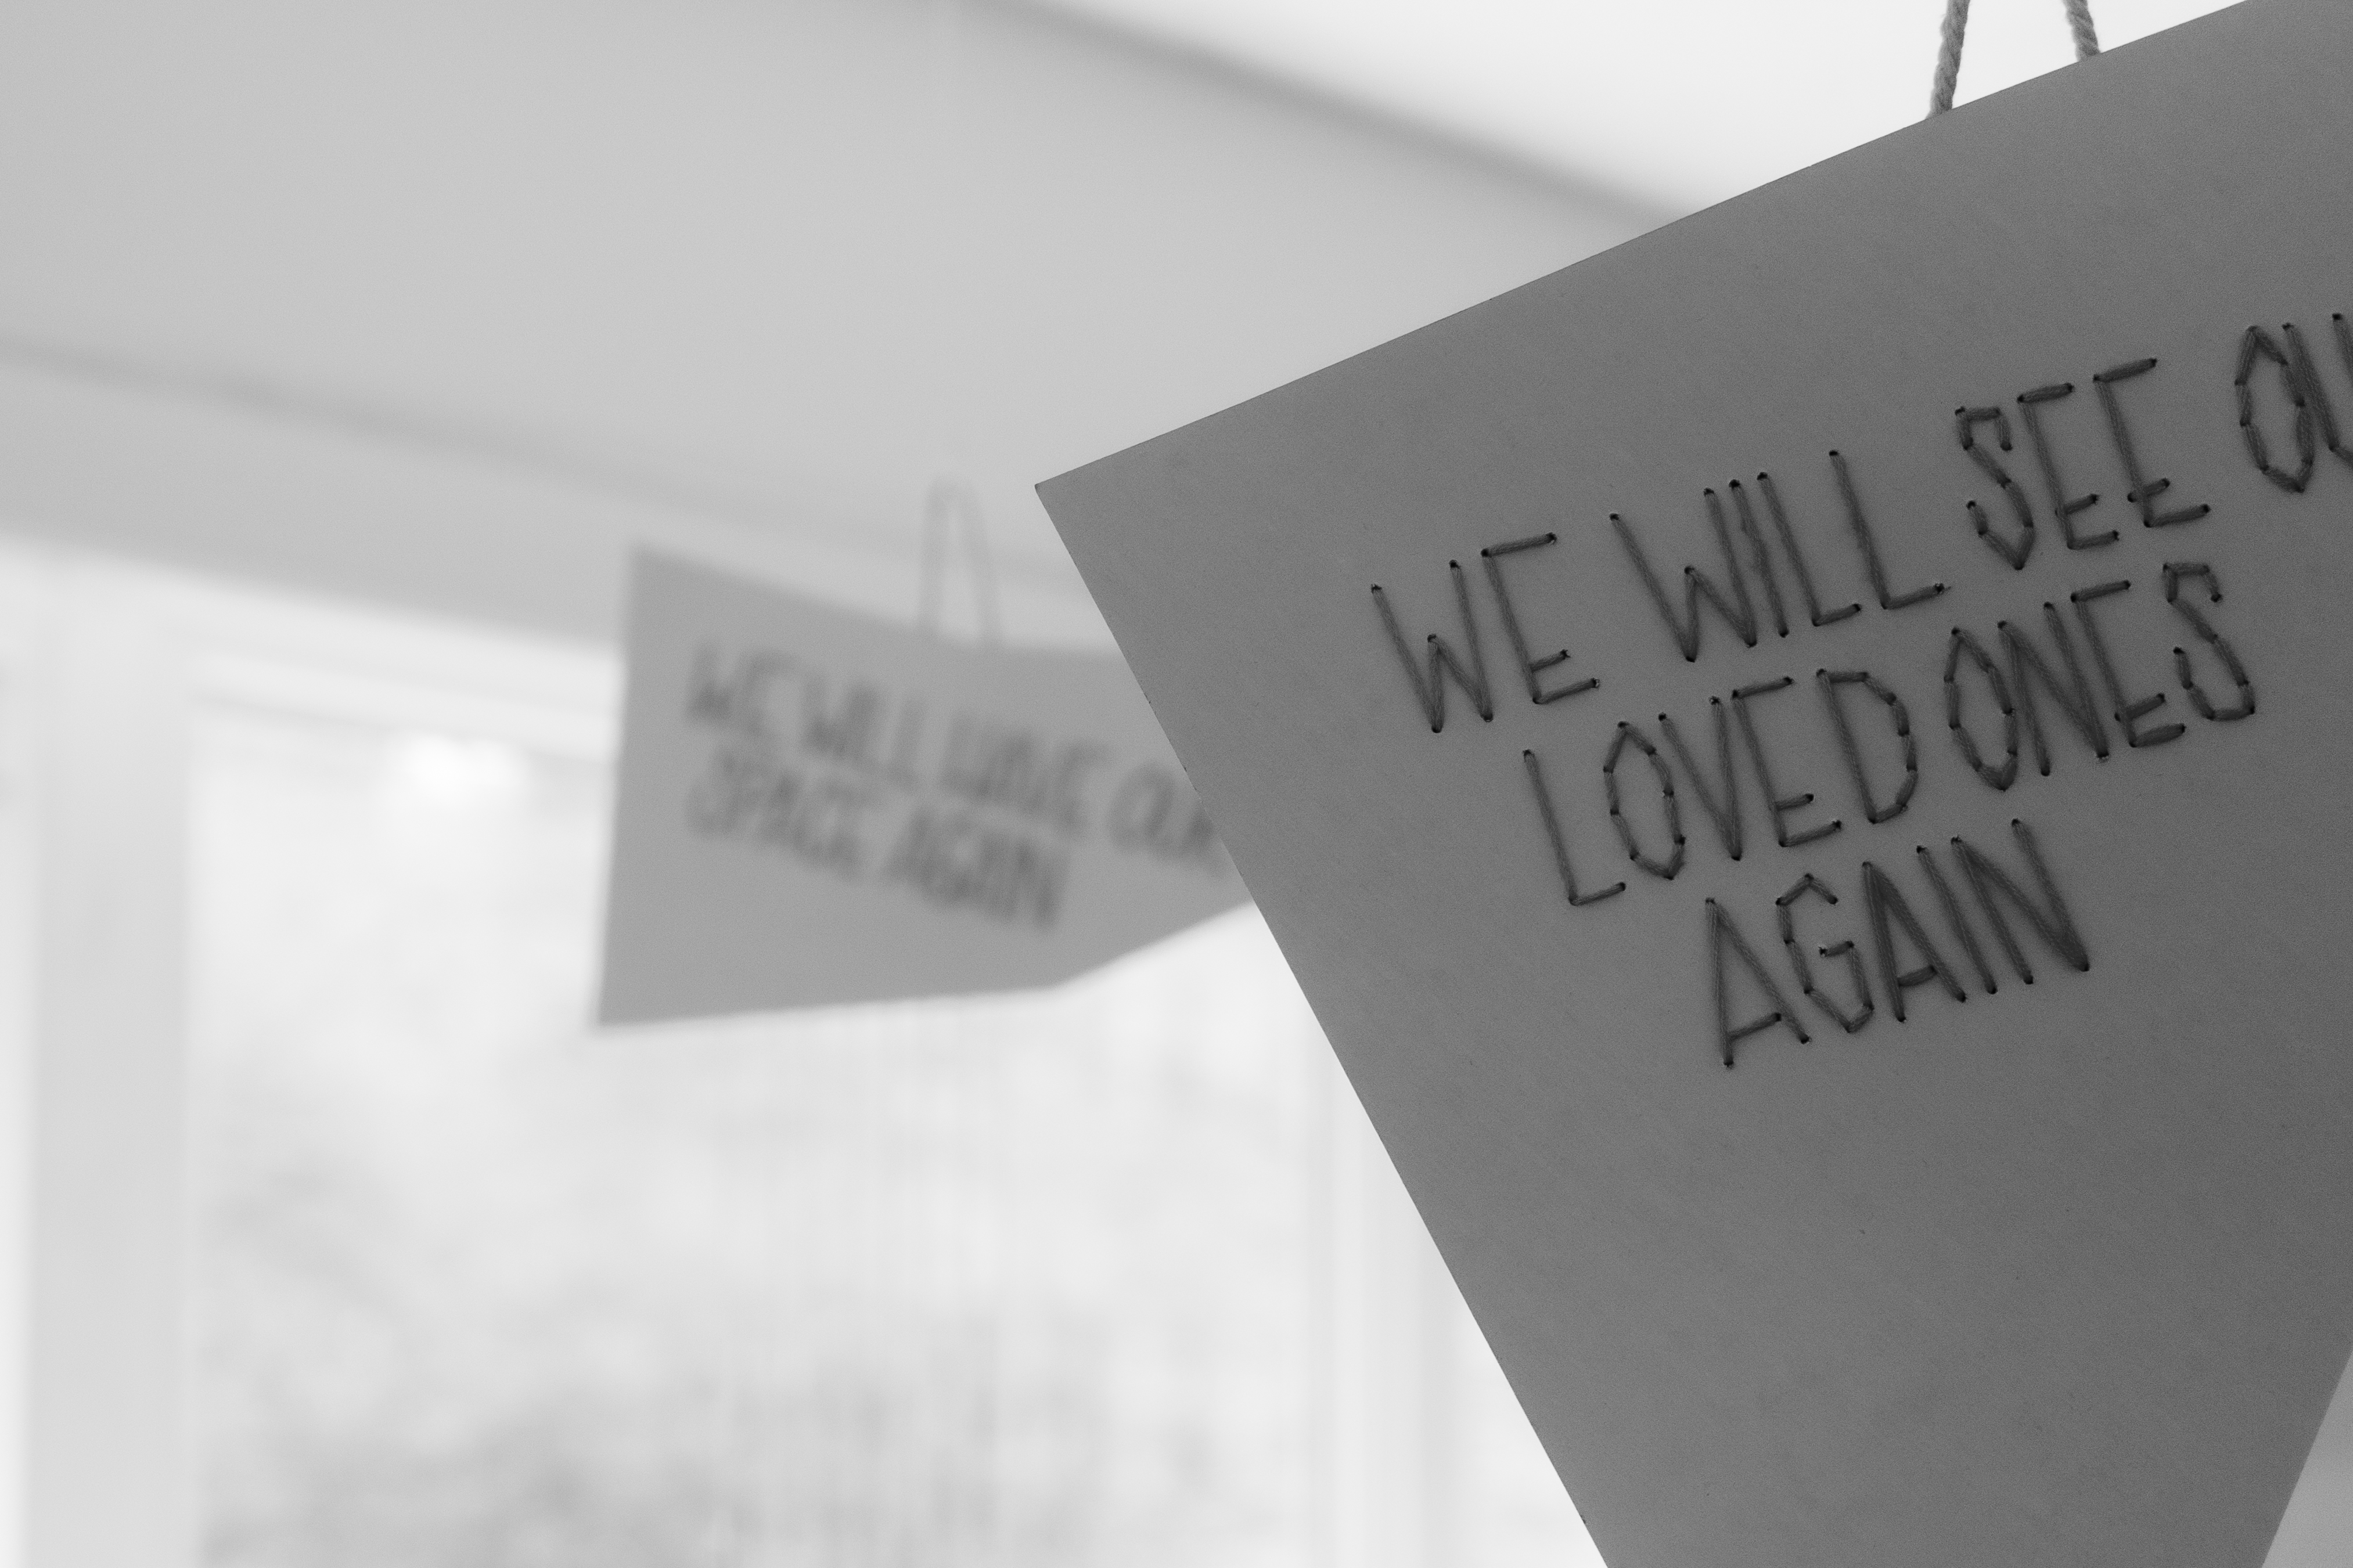 WE WILL SEE OU
LOVED ONES
AGAIN
WE WILL HAVE OUR
SPACE AGAIN